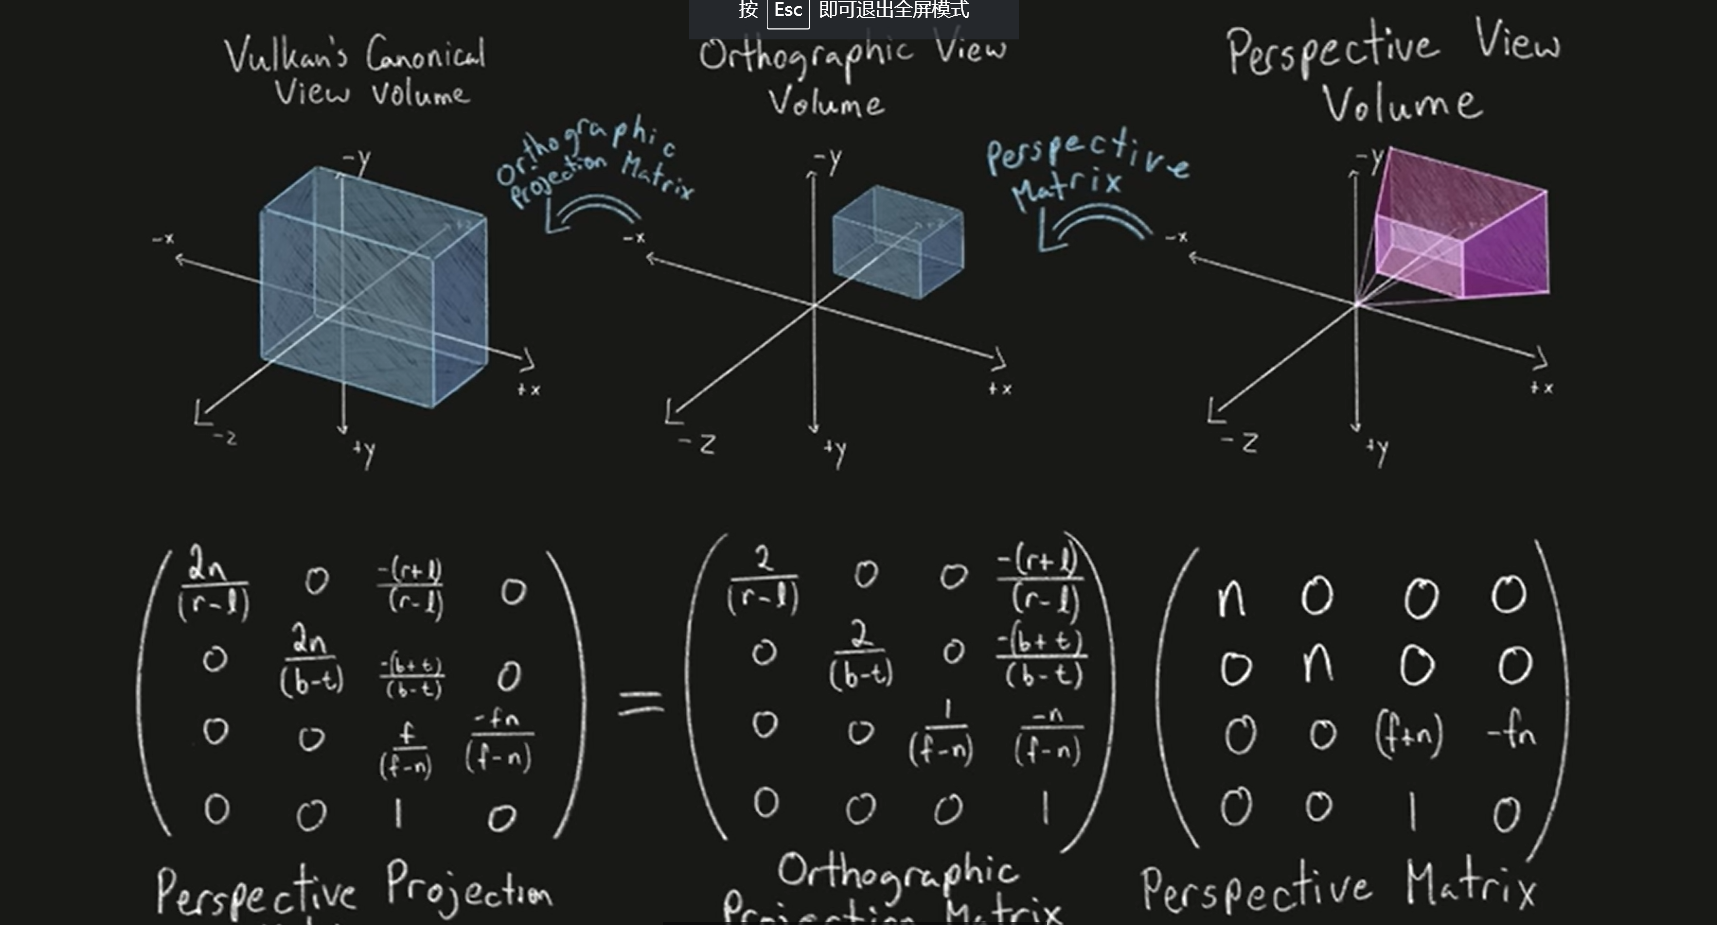 按 Esc 即可退出全屏模式
Vulkan's Canonical
View Volume
Orthographic View
Volume
Perspective View
Volume
Orthographic
Projection Matrix
Perspective
Matrix
-y
-x
+x
-z
+y
+z
-y
-x
+x
-z
+y
+z
-y
-x
+x
-z
+y
2n/(r-l) 0 -(r+l)/(r-l) 0
0 2n/(b-t) -(b+t)/(b-t) 0
0 0 f/(f-n) -fn/(f-n)
0 0 1 0
=
2/(r-l) 0 0 -(r+l)/(r-l)
0 2/(b-t) 0 -(b+t)/(b-t)
0 0 1/(f-n) -n/(f-n)
0 0 0 1
n 0 0 0
0 n 0 0
0 0 (f+n) -fn
0 0 1 0
Perspective Projection
Orthographic
Projection Matrix
Perspective Matrix